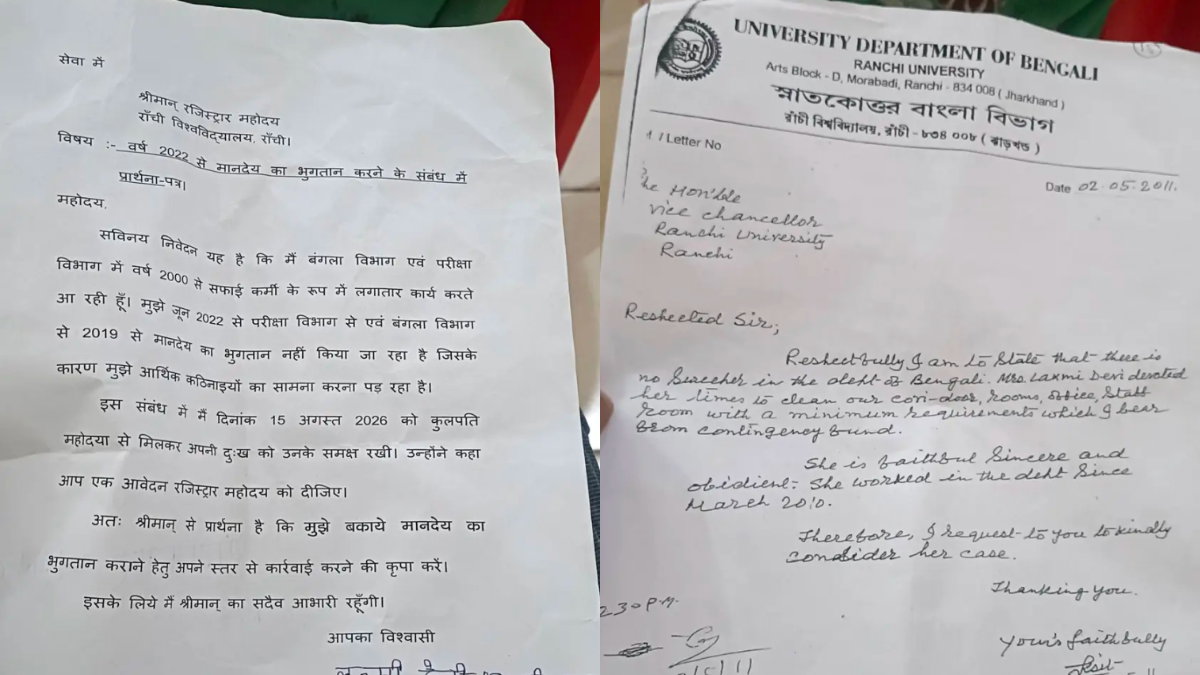 सेवा में
श्रीमान् रजिस्ट्रार महोदय
राँची विश्वविद्यालय, राँची।
विषय :- वर्ष 2022 से मानदेय का भुगतान करने के संबंध में
प्रार्थना-पत्र।
महोदय,
सविनय निवेदन यह है कि मैं बंगला विभाग एवं परीक्षा
विभाग में वर्ष 2000 से सफाई कर्मी के रूप में लगातार कार्य करते
आ रही हूँ। मुझे जून 2022 से परीक्षा विभाग से एवं बंगला विभाग
से 2019 से मानदेय का भुगतान नहीं किया जा रहा है जिसके
कारण मुझे आर्थिक कठिनाइयों का सामना करना पड़ रहा है।
इस संबंध में मैं दिनांक 15 अगस्त 2026 को कुलपति
महोदया से मिलकर अपनी दुःख को उनके समक्ष रखी। उन्होंने कहा
आप एक आवेदन रजिस्ट्रार महोदय को दीजिए।
अतः श्रीमान् से प्रार्थना है कि मुझे बकाये मानदेय का
भुगतान कराने हेतु अपने स्तर से कार्रवाई करने की कृपा करें।
इसके लिये मैं श्रीमान् का सदैव आभारी रहूँगी।
आपका विश्वासी
UNIVERSITY DEPARTMENT OF BENGALI
RANCHI UNIVERSITY
Arts Block - D, Morabadi, Ranchi - 834 008 ( Jharkhand )
স্নাতকোত্তর বাংলা বিভাগ
রাঁচী বিশ্ববিদ্যালয়, রাঁচী - ৮৩৪ ০০৮ ( ঝাড়খণ্ড )
/ Letter No
Date 02.05.2011.
The Hon'ble
Vice chancellor
Ranchi University
Ranchi
Respected Sir;
Respectfully I am to State that there is
no Sweeper in the deptt of Bengali. Mrs. Laxmi Devi devoted
her times to clean our cori-door, rooms, office, Staff
room with a minimum requirements which I bear
from contingency fund.
She is faithful Sincere and
obidient. She worked in the deptt Since
March 2010.
Therefore, I request to you to kindly
consider her case.
Thanking you.
2.30 P.M.
Your's faithfully